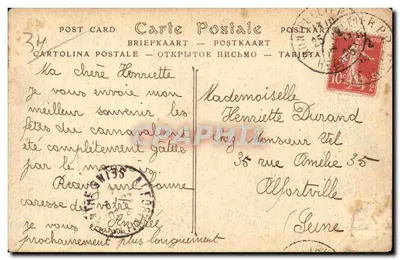 34
POST CARD Carte Postale POSTKART
BRIEFKAART — POSTKAART
CARTOLINA POSTALE — ОТКРЫТОЕ ПИСЬМО — TARJETA
Ma chère Henriette
je vous envoie mon
meilleur souvenir les
fêtes du carnaval
été complètement gatés
par le
bonne
caresse de votre
je vous
prochainement plus longuement
Mademoiselle
Henriette Durand
chez Monsieur Vel
35 rue Amélie 35
Alfortville
(Seine)
10c